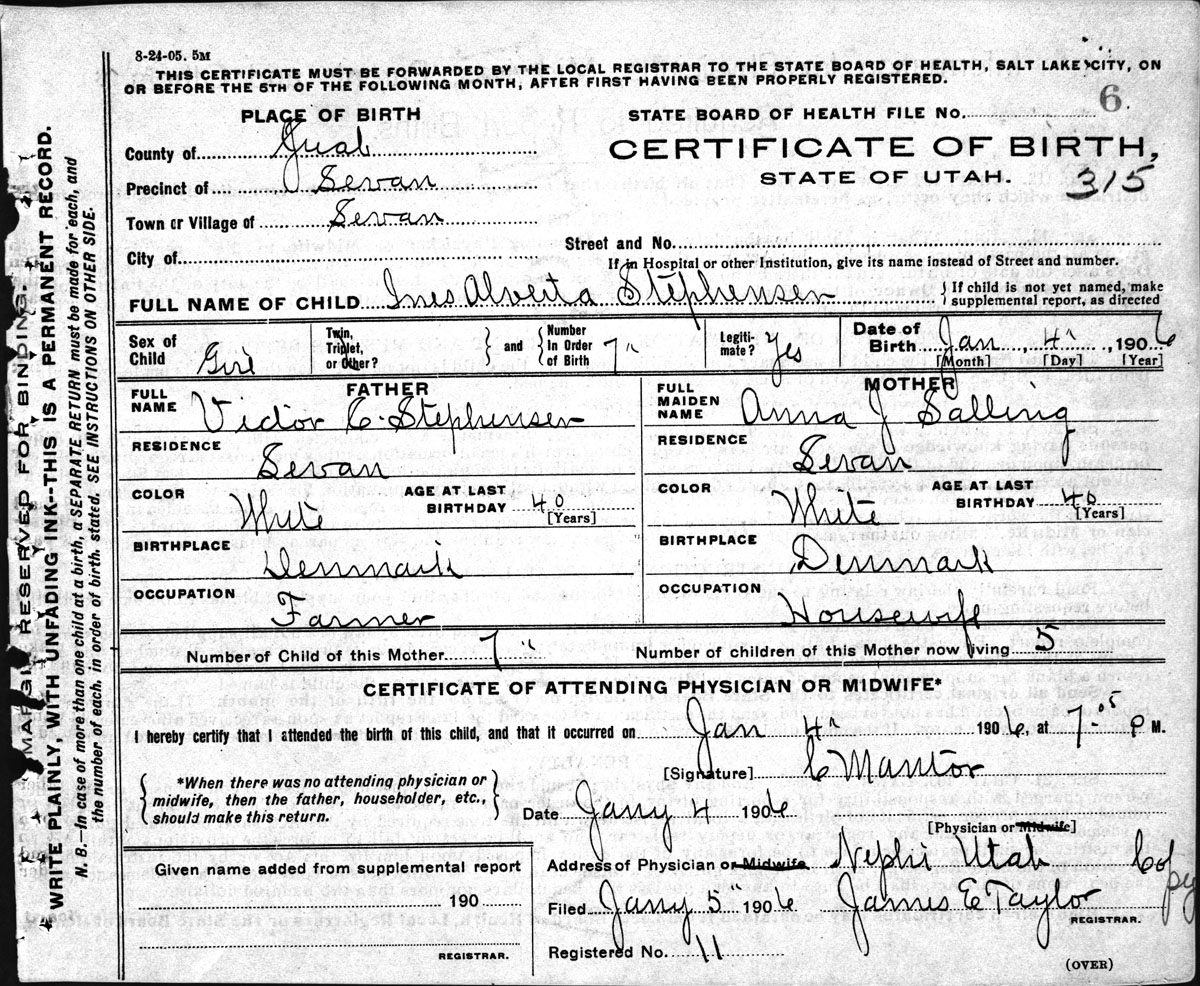 8-24-05. 5M
THIS CERTIFICATE MUST BE FORWARDED BY THE LOCAL REGISTRAR TO THE STATE BOARD OF HEALTH, SALT LAKE CITY, ON
OR BEFORE THE 5TH OF THE FOLLOWING MONTH, AFTER FIRST HAVING BEEN PROPERLY REGISTERED.
PLACE OF BIRTH
STATE BOARD OF HEALTH FILE No. 6
County of Juab
CERTIFICATE OF BIRTH,
STATE OF UTAH. 315
Precinct of Levan
Town or Village of Levan
Street and No.
City of
If in Hospital or other Institution, give its name instead of Street and number.
FULL NAME OF CHILD Ines Alverta Stephensen } If child is not yet named, make supplemental report, as directed
Sex of Child Girl Twin, Triplet, or Other? } and { Number In Order of Birth 7" Legiti- mate? Yes Date of Birth Jan 4th, 1906
[Month] [Day] [Year]
FATHER
MOTHER
FULL NAME Victor C. Stephensen
FULL MAIDEN NAME Anna J Salling
RESIDENCE Levan
RESIDENCE Levan
COLOR White AGE AT LAST BIRTHDAY 40 [Years]
COLOR White AGE AT LAST BIRTHDAY 40 [Years]
BIRTHPLACE Denmark
BIRTHPLACE Denmark
OCCUPATION Farmer
OCCUPATION Housewife
Number of Child of this Mother 7" Number of children of this Mother now living 5
CERTIFICATE OF ATTENDING PHYSICIAN OR MIDWIFE*
I hereby certify that I attended the birth of this child, and that it occurred on Jan 4th 1906, at 7-05 P M.
{ *When there was no attending physician or midwife, then the father, householder, etc., should make this return. }
[Signature] C Mantor
Date Jany 4 1906
[Physician or Midwife]
Given name added from supplemental report
190
REGISTRAR.
Address of Physician or Midwife Nephi Utah Copy
Filed Jany 5" 1906 James E Taylor
REGISTRAR.
Registered No. 11
(OVER)
MARGIN RESERVED FOR BINDING.
WRITE PLAINLY, WITH UNFADING INK—THIS IS A PERMANENT RECORD.
N. B.—In case of more than one child at a birth, a SEPARATE RETURN must be made for each, and
the number of each, in order of birth, stated. SEE INSTRUCTIONS ON OTHER SIDE.